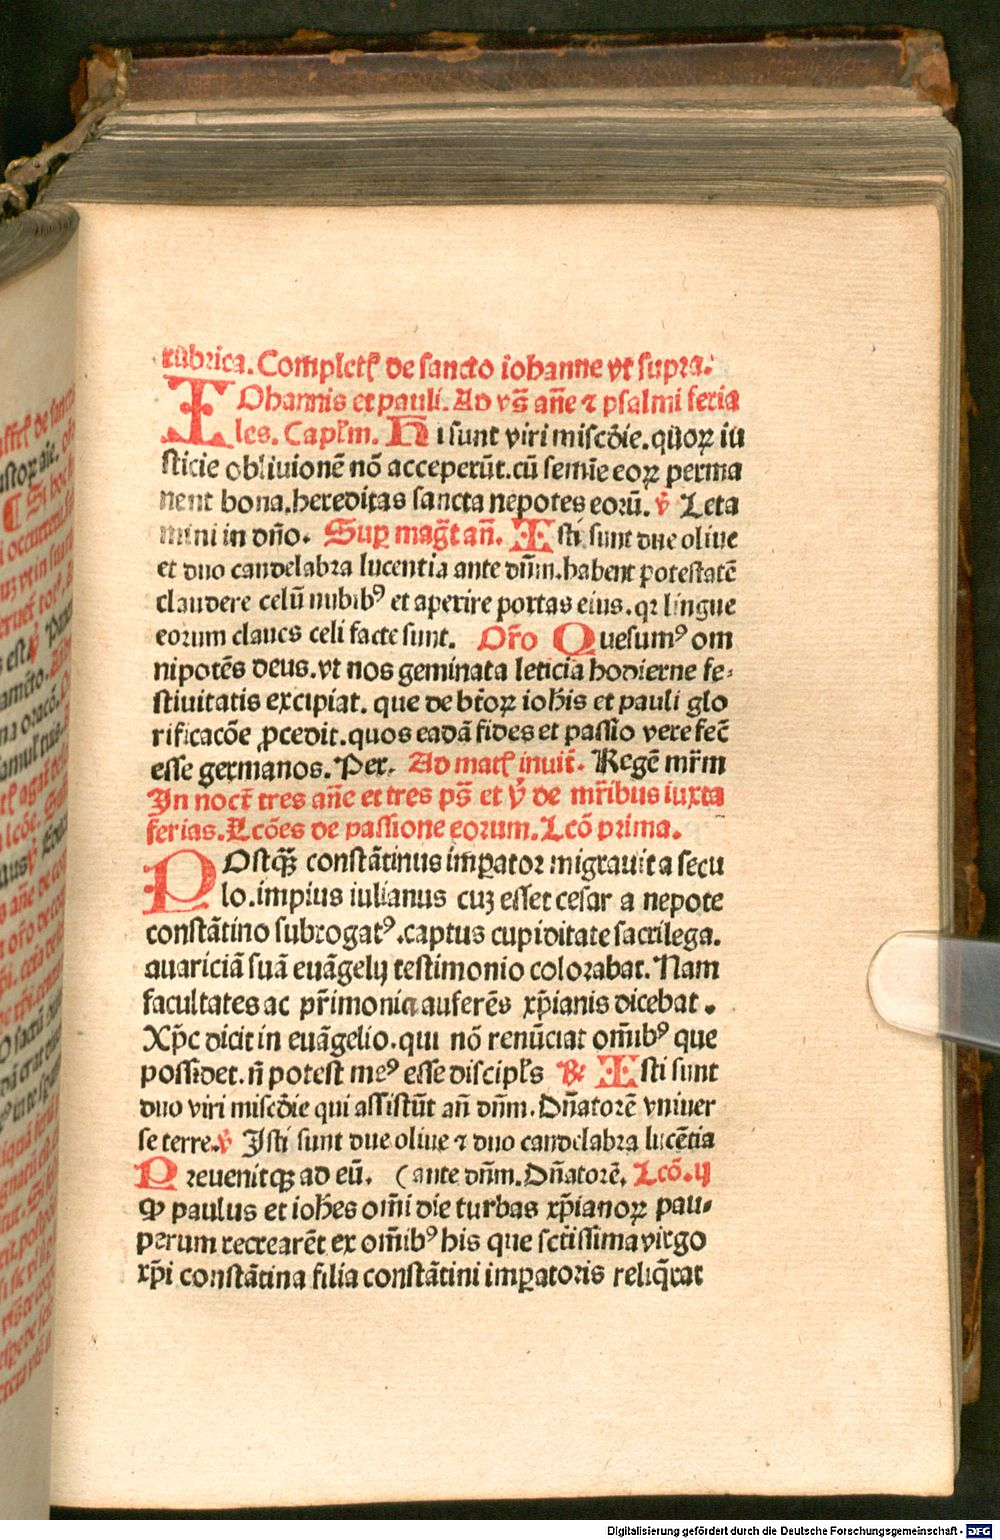 rubrica. Completꝭ de sancto iohanne vt supra.
IOhannis et pauli. Ad vs̄ añe ⁊ psalmi feria
les. Capl̄m. Hi sunt viri misc̄die. quoꝝ iu
sticie obliuionē nō acceperūt. cū semīe eoꝝ perma
nent bona. hereditas sancta nepotes eorū. v̄ Leta
mini in dño. Suꝑ mag̃t añ. Isti sunt due oliue
et duo candelabra lucentia ante dn̄m. habent potestatē
claudere celū nubibꝰ et aperire portas eius. qꝛ lingue
eorum claues celi facte sunt. Oro̅ Quesumꝰ om
nipotēs deus. vt nos geminata leticia hodierne fe-
stiuitatis excipiat. que de bt̄oꝝ ioh̄is et pauli glo
rificacōe ꝓcedit. quos eadā fides et passio vere fec̄
esse germanos. Per. Ad matꝭ inuit̄. Regē mr̄m
In noct̄ tres añe et tres ps̄ et v̄ de mr̄ibus iuxta
ferias. Lcōes de passione eorum. Lcō prima.
POstꝗ̄ constātinus imꝑator migrauit a secu
lo. impius iulianus cuꝫ esset cesar a nepote
constātino subrogatꝰ. captus cupiditate sacrilega.
auariciā suā euāgelij testimonio colorabat. Nam
facultates ac pr̄imonia auferēs xp̄ianis dicebat.
Xp̄c dicit in euāgelio. qui nō renūciat om̄ibꝰ que
possidet. n̄ potest meꝰ esse discipl̄s ℟ Isti sunt
duo viri misc̄die qui assistūt añ dn̄m. Dn̄atorē vniuer
se terre. v̄ Isti sunt due oliue ⁊ duo candelabra lucētia
Preuenitqꝫ ad eū. (ante dn̄m. Dn̄atorē. Lcō. ij
ꝙ paulus et ioh̄es om̄i die turbas xp̄ianoꝝ pau-
perum recrearēt ex om̄ibꝰ his que sctissima virgo
xp̄i constātina filia constātini imꝑatoris reliq̄rat
Digitalisierung gefördert durch die Deutsche Forschungsgemeinschaft - DFG